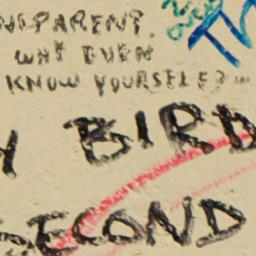 NSPARENT.
WHY EVEN
KNOW YOURSELF?
Y BIRD
SECOND